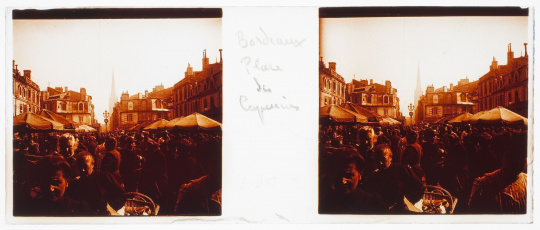 Bordeaux
Place
des
Capucins